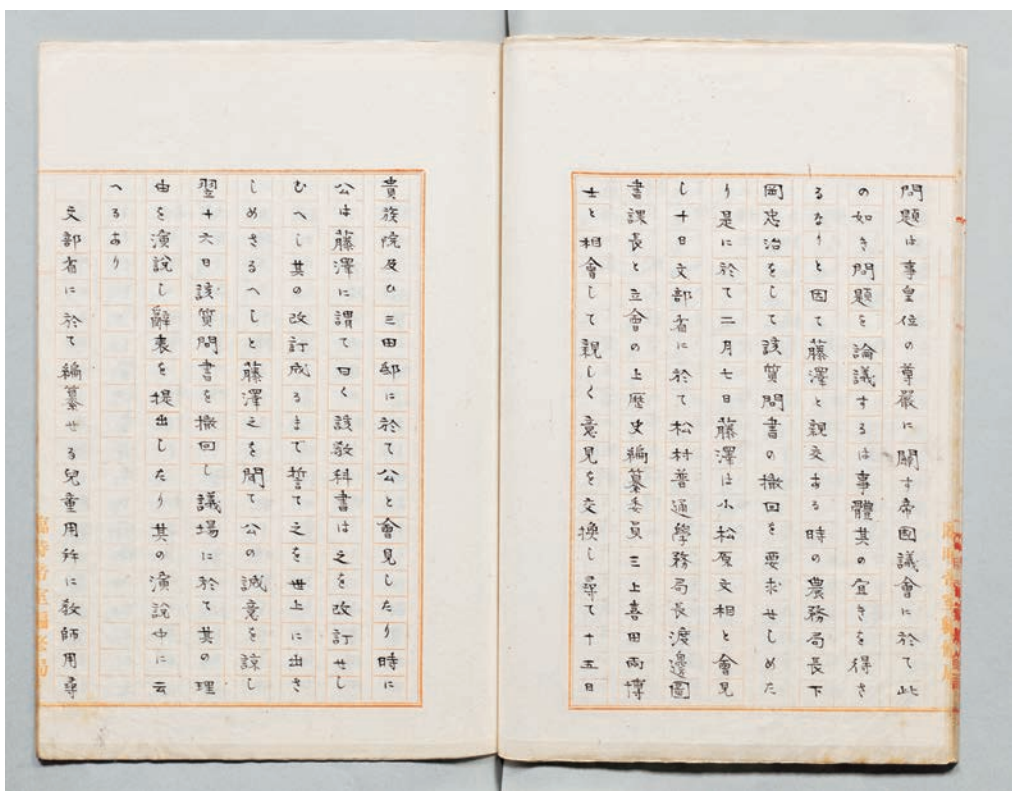 問題は事皇位の尊厳に關す帝國議會に於て此
の如き問題を論議するは事體其の宜きを得さ
るなりと因て藤澤と親交ある時の農務局長下
岡忠治をして該質問書の撤回を要求せしめた
り是に於て二月七日藤澤は小松原文相と會見
し十日文部省に於て松村普通學務局長渡邊圖
書課長と立會の上歴史編纂委員三上喜田兩博
士と相會して親しく意見を交換し尋て十五日
貴族院及ひ三田邸に於て公と會見したり時に
公は藤澤に謂て曰く該教科書は之を改訂せし
むへし其の改訂成るまて誓て之を世上に出さ
しめさるへしと藤澤之を聞て公の誠意を諒し
翌十六日該質問書を撤回し議場に於て其の理
由を演說し辭表を提出したり其の演說中に云
へるあり
文部省に於て編纂せる兒童用幷に敎師用尋